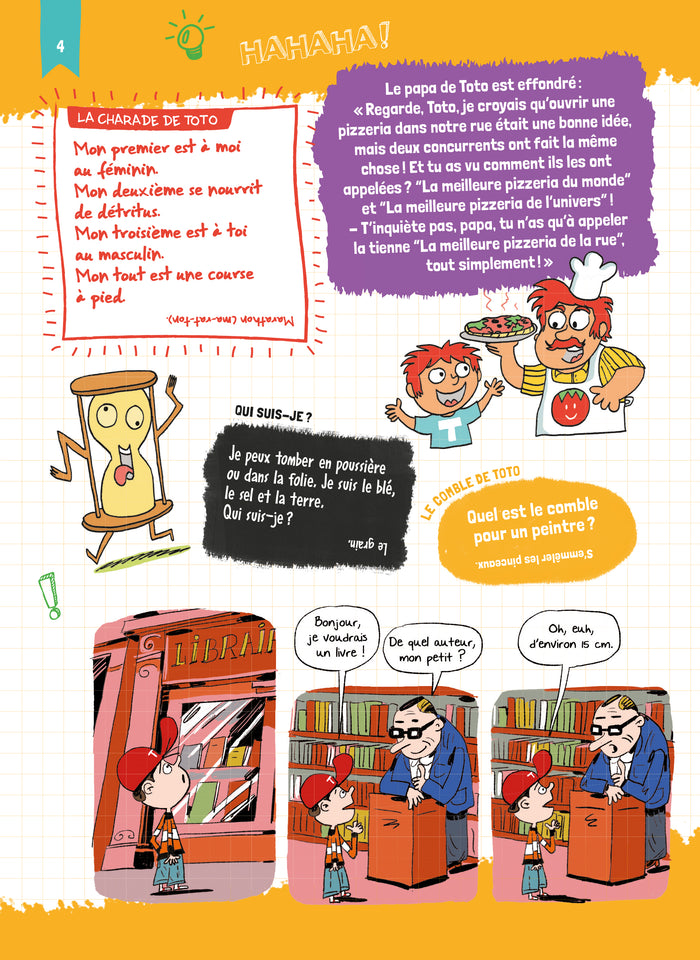 4
HAHAHA!
LA CHARADE DE TOTO
Mon premier est à moi
au féminin.
Mon deuxième se nourrit
de détritus.
Mon troisième est à toi
au masculin.
Mon tout est une course
à pied.
Marathon (ma-rat-ton).
Le papa de Toto est effondré :
« Regarde, Toto, je croyais qu'ouvrir une
pizzeria dans notre rue était une bonne idée,
mais deux concurrents ont fait la même
chose ! Et tu as vu comment ils les ont
appelées ? "La meilleure pizzeria du monde"
et "La meilleure pizzeria de l'univers" !
– T'inquiète pas, papa, tu n'as qu'à appeler
la tienne "La meilleure pizzeria de la rue",
tout simplement ! »
T
QUI SUIS-JE ?
Je peux tomber en poussière
ou dans la folie. Je suis le blé,
le sel et la terre.
Qui suis-je ?
Le grain.
LE COMBLE DE TOTO
Quel est le comble
pour un peintre ?
S'emmêler les pinceaux.
LIBRAIR
T
Bonjour,
je voudrais
un livre !
De quel auteur,
mon petit ?
T
Oh, euh,
d'environ 15 cm.
T